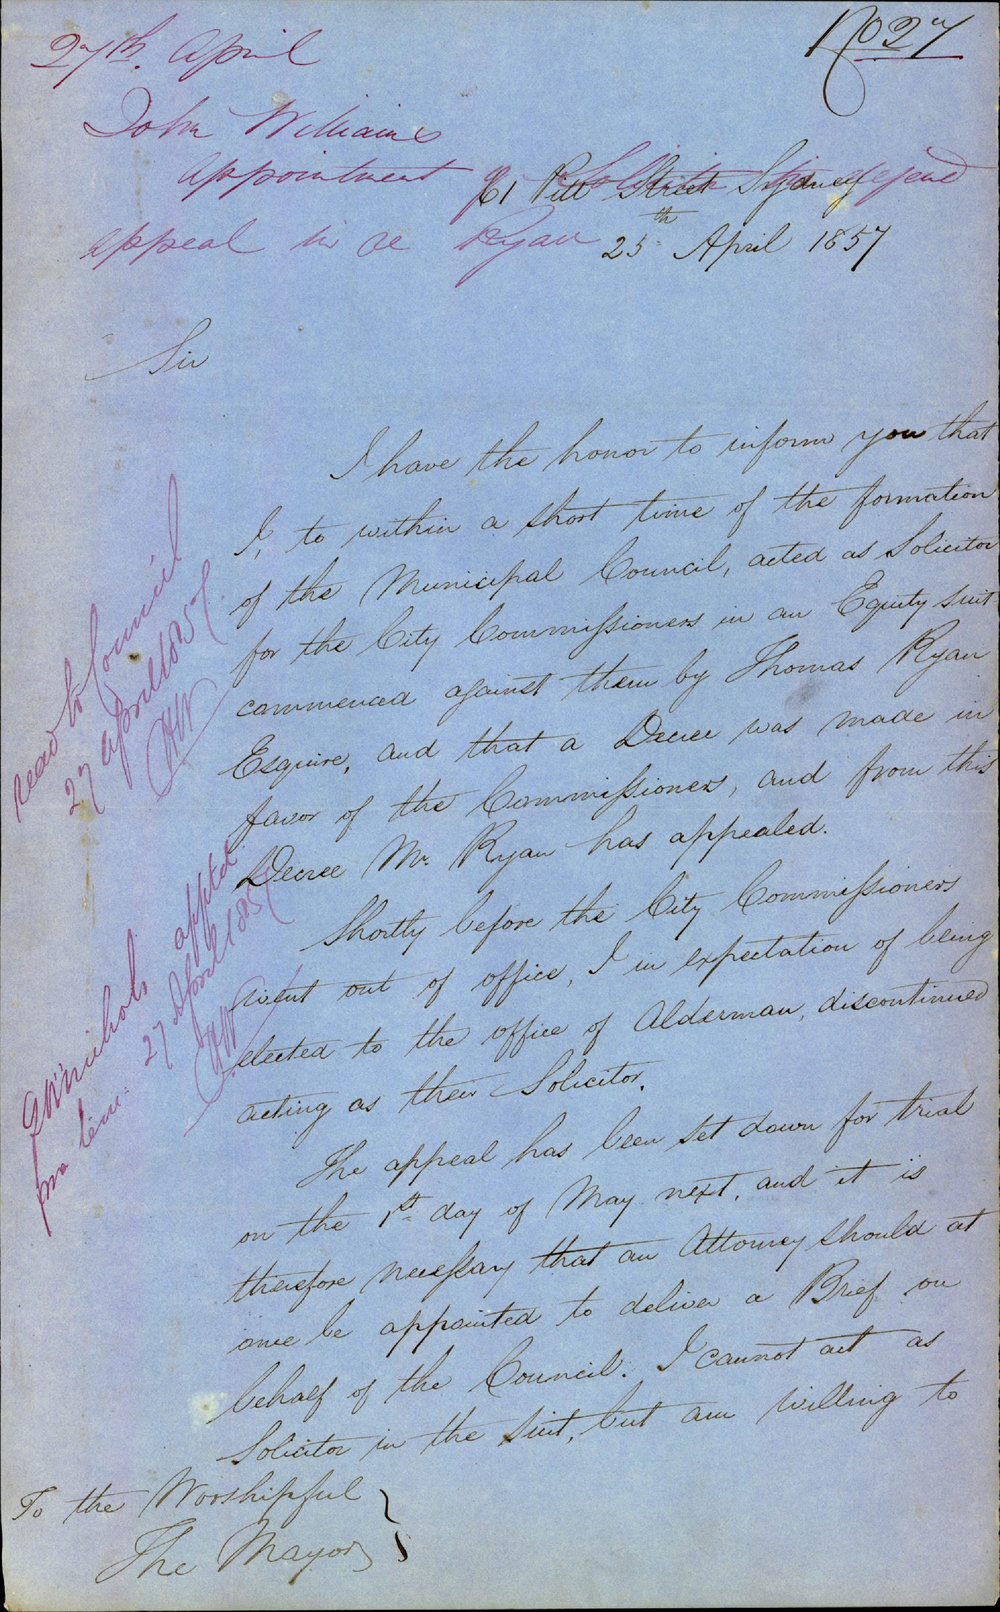 No 27
27th. April
John Williams
appointment of Solicitor to defend
appeal in re Ryan
61 Pitt Street Sydney
25th April 1857
Sir
I have the honor to inform you that
I, to within a short time of the formation
of the Municipal Council, acted as Solicitor
for the City Commissioners in an Equity suit
commenced against them by Thomas Ryan
Esquire, and that a Decree was made in
favor of the Commissioners, and from this
Decree Mr. Ryan has appealed.
Shortly before the City Commissioners
went out of office, I in expectation of being
elected to the office of Alderman, discontinued
acting as their Solicitor.
The appeal has been set down for trial
on the 1st day of May next, and it is
therefore necessary that an Attorney should at
once be appointed to deliver a Brief on
behalf of the Council. I cannot act as
Solicitor in the suit, but am willing to
To the Worshipful
The Mayor
read to Council
27 April 1857
Nichols apptd
pro tem: 27 April 1857